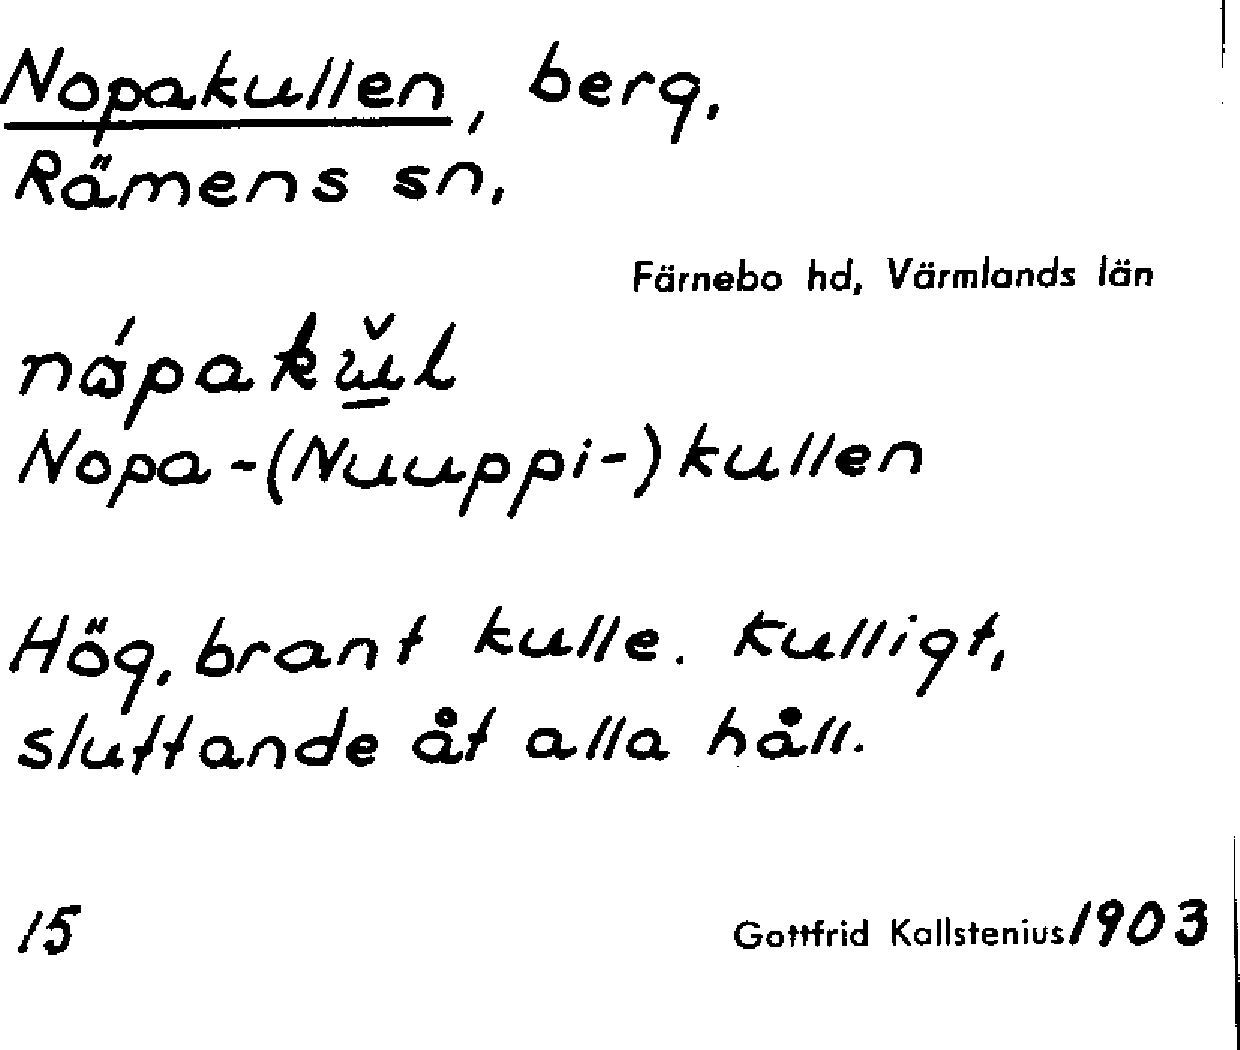 Nopakullen, berg.
Rämens sn,
Färnebo hd, Värmlands län
Nopa-(Nuuppi-)kullen
Hög, brant kulle. Kulligt,
sluttande åt alla håll.
15
Gottfrid Kallstenius 1903